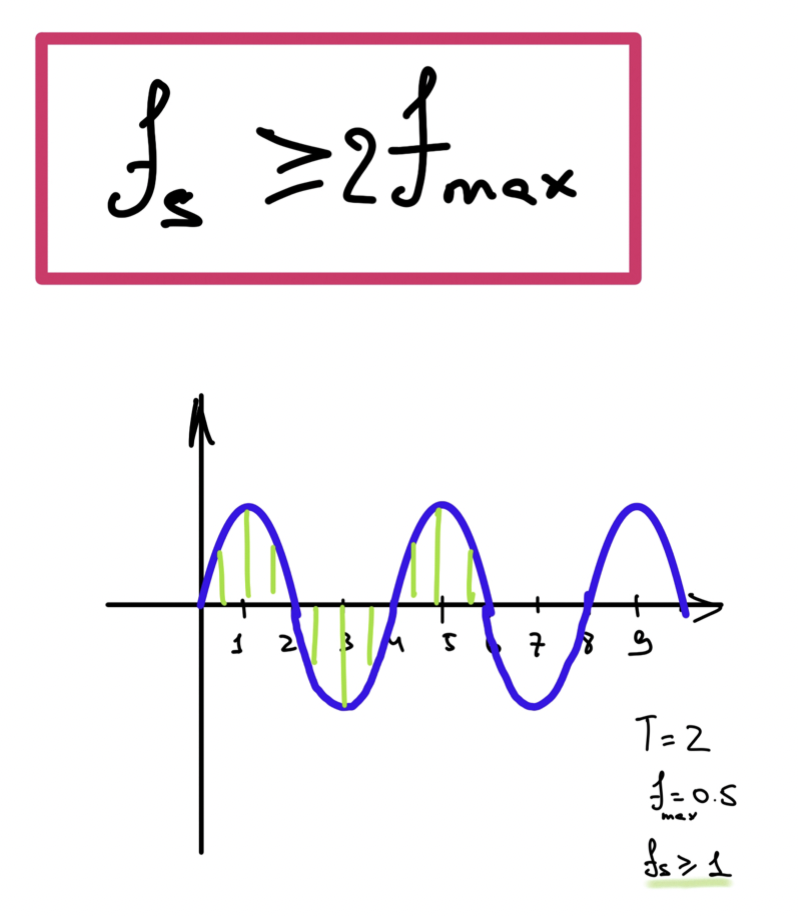 fs ≥ 2fmax
1 2 3 4 5 6 7 8 9
T = 2
fmax = 0.5
fs ≥ 1